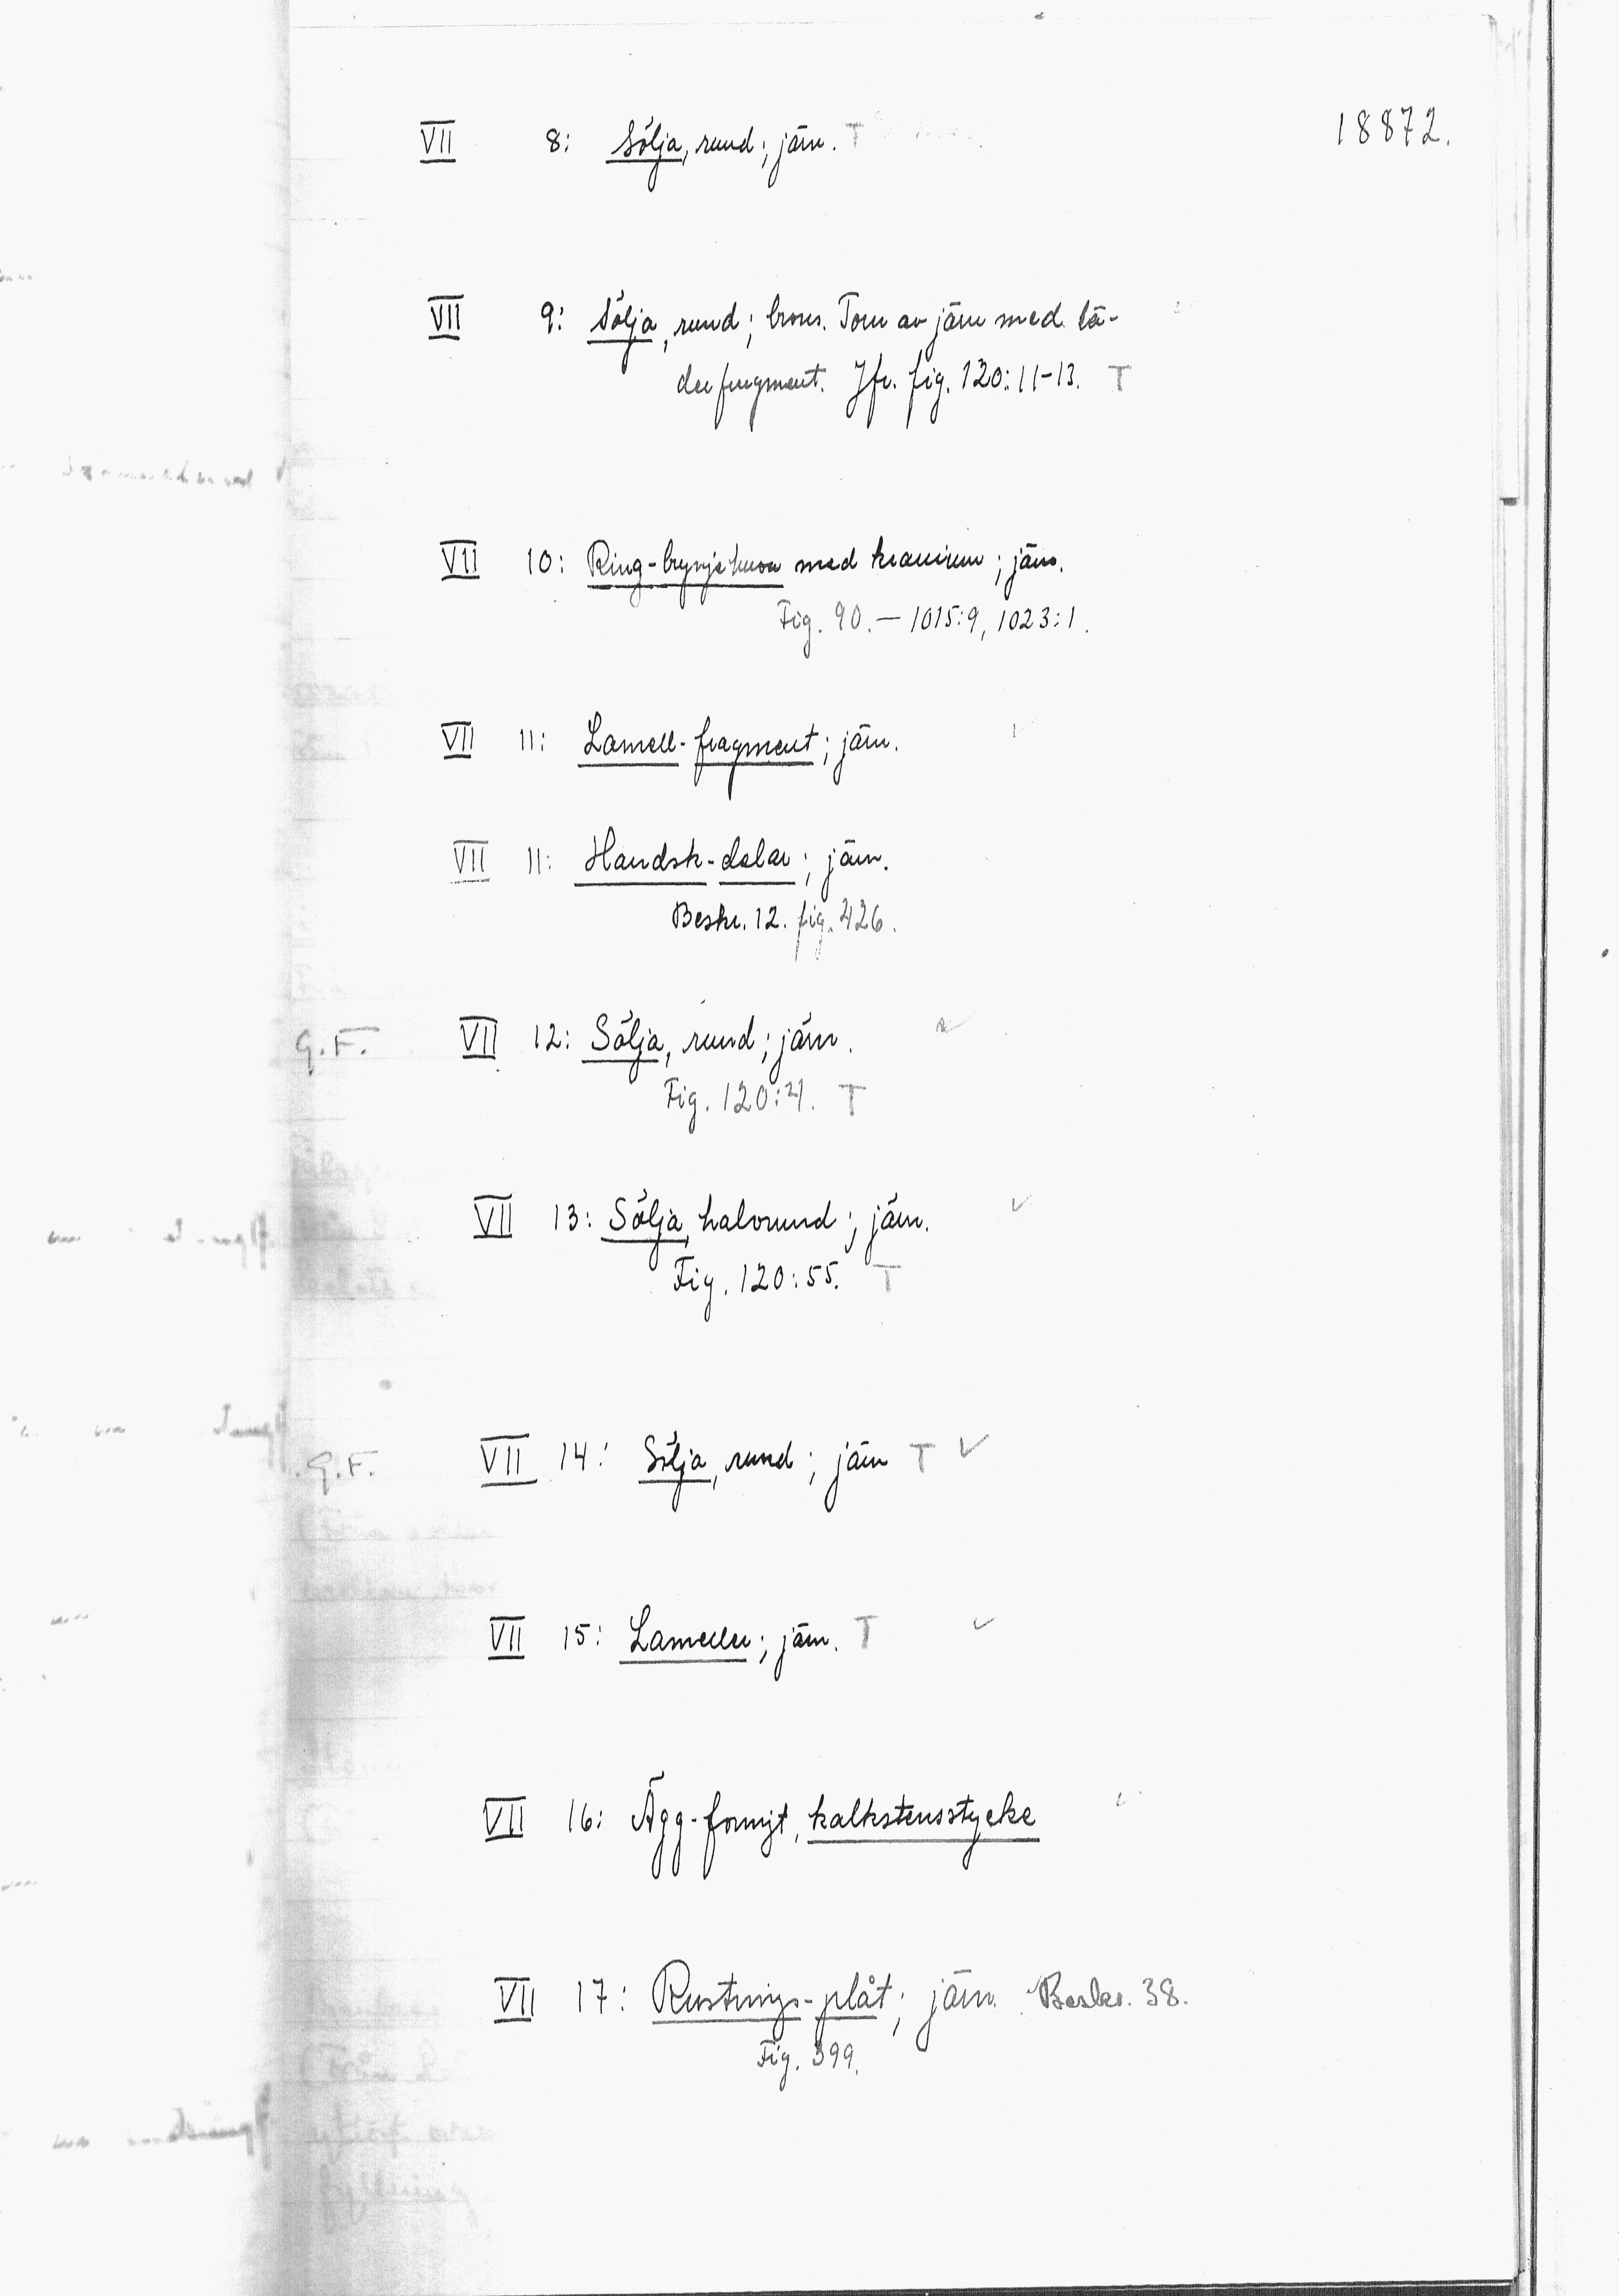 18872.
VII 8: Sölja, rund; järn. T
VII 9: Sölja, rund; brons. Torn av järn med lä-
derfragment. Jfr. fig. 120:11-13. T
VII 10: Ring-brynjehuva med kranium; järn.
Fig. 90. — 1015:9, 1023:1.
VII 11: Lamell-fragment; järn.
VII 11: Handsk-delar; järn.
Beskr. 12. fig. 426.
G.F. VII 12: Sölja, rund; järn.
Fig. 120:4. T
VII 13: Sölja, halvrund; järn.
Fig. 120:55. T
G.F. VII 14: Sölja, rund; järn T
VII 15: Lameller; järn. T
VII 16: Ägg-formigt, kalkstensstycke
VII 17: Rustnings-plåt; järn. Beskr. 38.
Fig. 399.